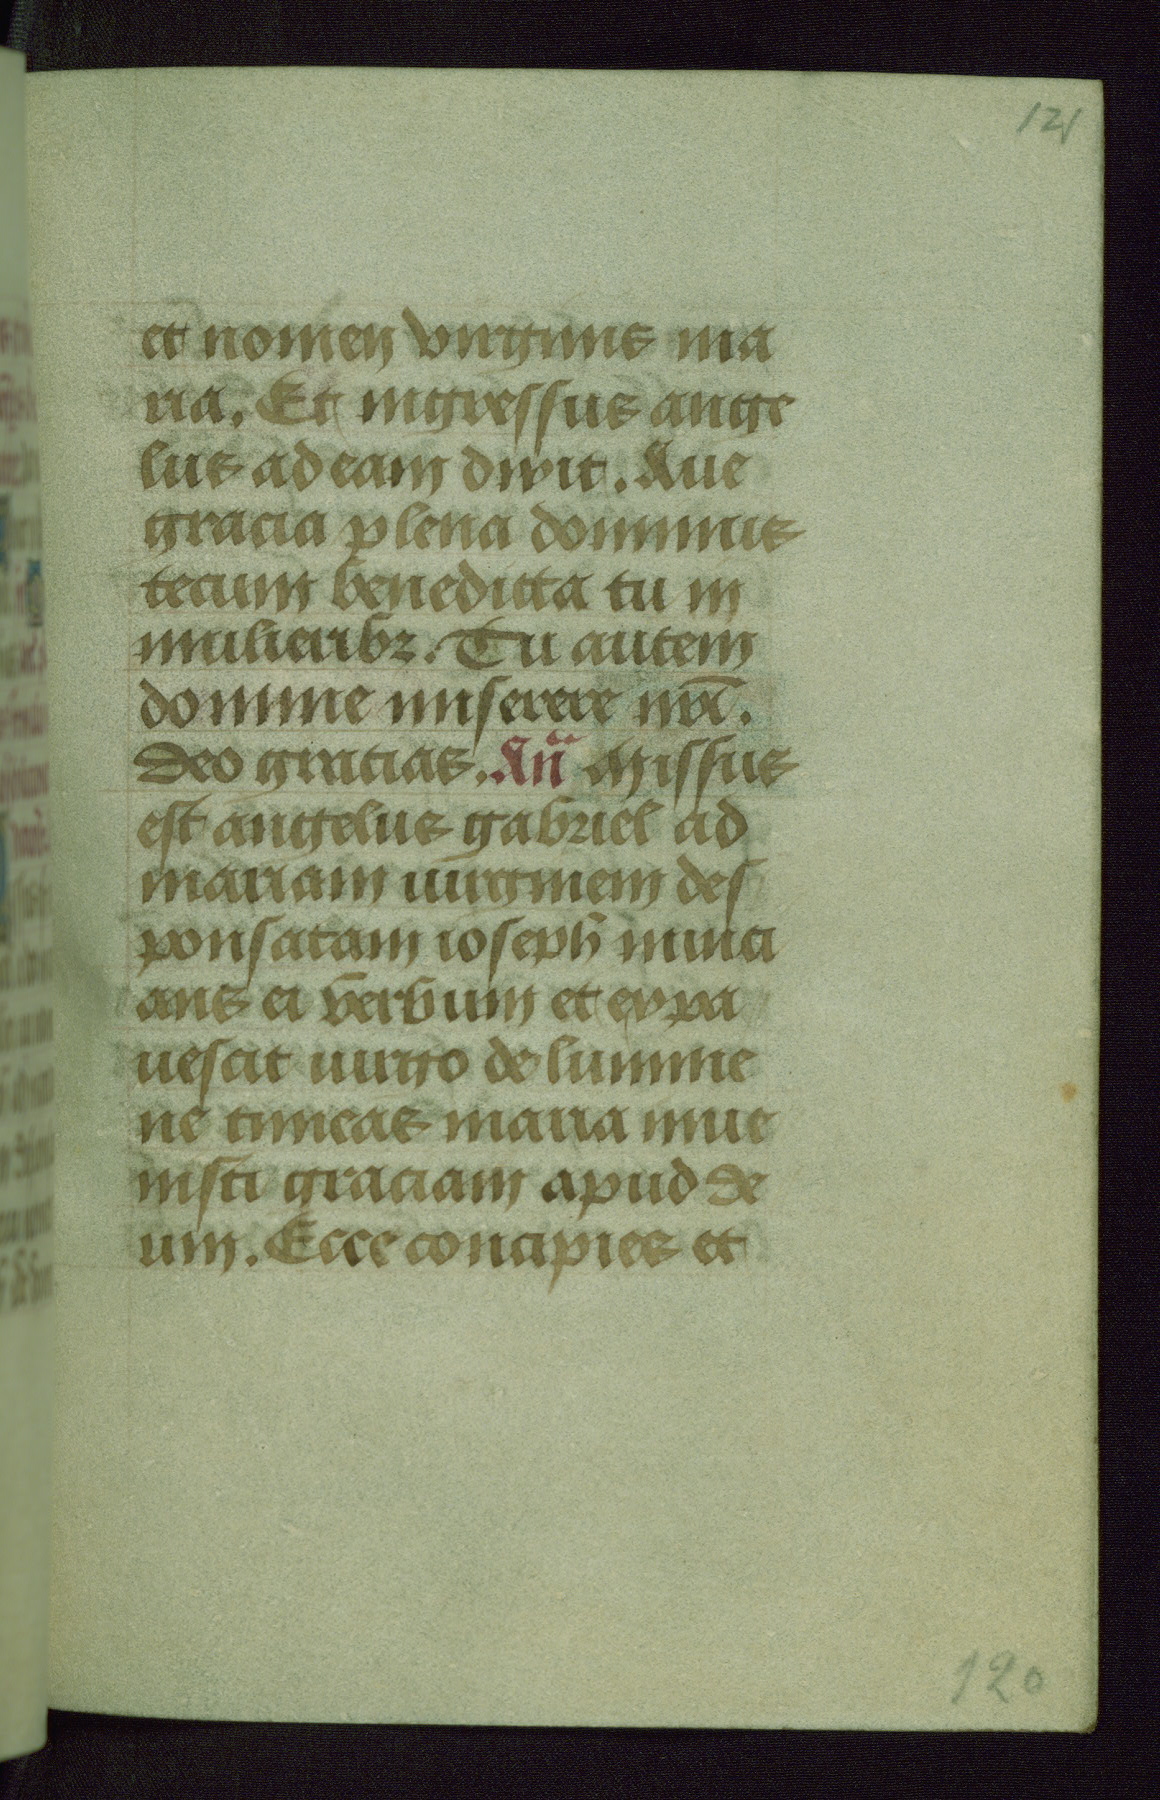 121
et nomen virginis ma
ria. Et ingressus ange
lus ad eam dixit. Aue
gracia plena dominus
tecum benedicta tu in
mulieribꝫ. Tu autem
domine miserere nr̄i.
Deo gracias. An̄ Missus
est angelus gabriel ad
mariam uirginem des
ponsatam ioseph nunci
ans ei verbum et expa
uescit uirgo de lumine
ne timeas maria inue
nisti graciam apud de
um. Ecce concipies et
120